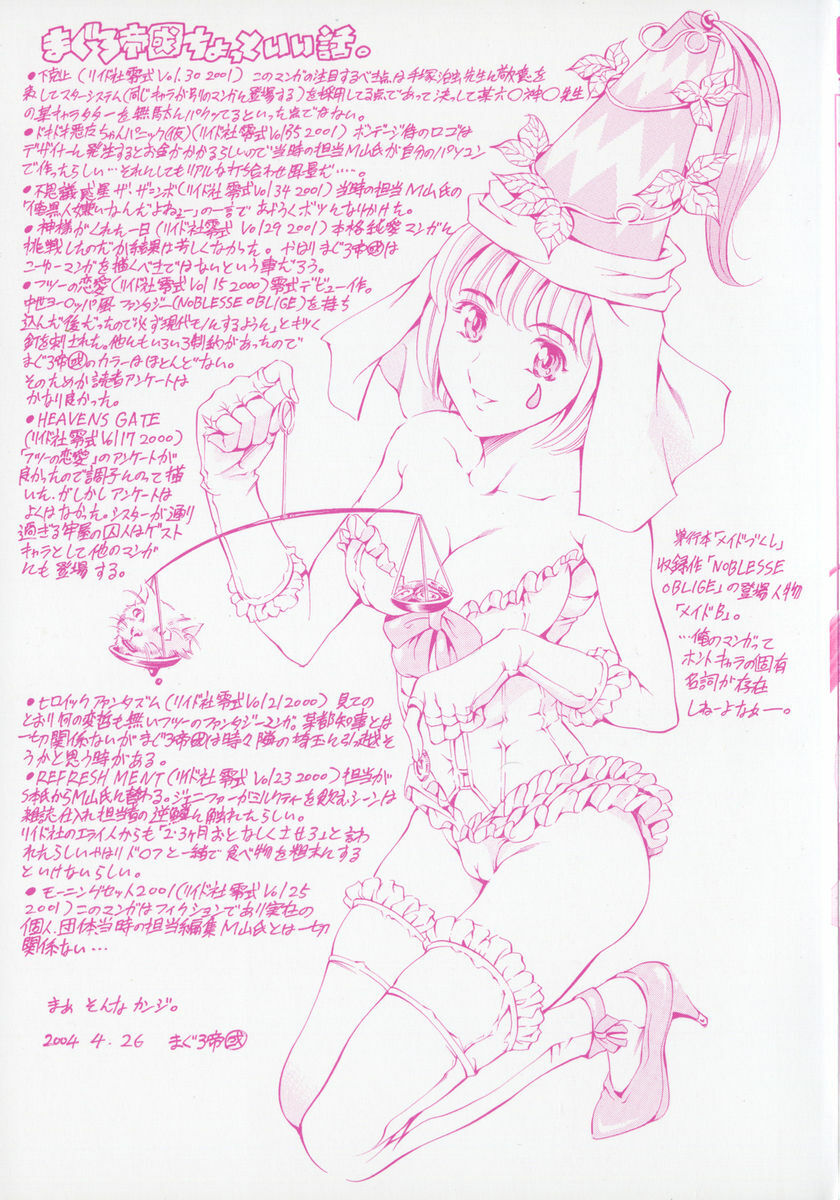 まぐろ帝國ちょっといい話。
●下克上(リイド社零式Vol.30 2001) このマンガの注目するべき点は手塚治虫先生に敬意を
表してスターシステム(同じキャラが別のマンガに登場する)を採用してる点であって決して某六〇神〇先生
の某キャラクターを無断でパクッてるといった点ではない。
デザイナーに発生するとお金がかかるらしいので当時の担当M山氏が自分のパソコン
で作ったらしい…それにしてもリアルな打ち合わせ風景だ…。
●不思議惑星ザ・ザンボ(リイド社零式Vol34 2001)当時の担当M山氏の
「俺黒人嫌いなんだよねェー」の一言であやうくボツになりかけた。
●神様がくれた一日(リイド社零式Vol29 2001)本格純愛マンガに
挑戦したのだが結果は芳しくなかった。やはりまぐろ帝國は
こーゆーマンガを描くべきではないという事だろう。
●フツーの恋愛(リイド社零式Vol15 2000)零式デビュー作。
中世ヨーロッパ風ファンタジー(NOBLESSE OBLIGE)を持ち
込んだ後だったので「必ず現代モノにするように」ときつく
釘を刺された。他にもいろいろ制約があったので
まぐろ帝國のカラーはほとんどない。
そのためか読者アンケートは
かなり良かった。
●HEAVENS GATE
(リイド社零式Vol17 2000)
「フツーの恋愛」のアンケートが
良かったので調子にのって描
いた。がしかしアンケートは
よくはなかった。シスターが通り
過ぎる牢屋の囚人はゲスト
キャラとして他のマンガ
にも登場する。
単行本「メイドづくし」
収録作「NOBLESSE
OBLIGE」の登場人物
「メイドB」。
…俺のマンガって
ホントキャラの固有
名詞が存在
しねーよなァー。
●ヒロイックファンタズム(リイド社零式Vol21 2000) 見ての
とおり何の変哲も無いフツーのファンタジーマンガ。某都知事とは
一切関係ないがまぐろ帝國は時々隣の埼玉に引越そ
うかと思う時がある。
●REFRESHMENT(リイド社零式Vol.23 2000)担当が
S本氏からM山氏に替わる。ジェニファーがミルクティーを飲むシーンは
雑誌仕入れ担当者の逆鱗に触れたらしい。
リイド社のエライ人からも「2・3ヶ月おとなしくさせろ」と言わ
れたらしいやはりドロフと一緒で食べ物を粗末にする
といけないらしい。
●モーニングセット2001(リイド社零式Vol25
2001)このマンガはフィクションであり実在の
個人、団体当時の担当編集M山氏とは一切
関係ない…
まぁ そんなカンジ。
2004 4.26 まぐろ帝國